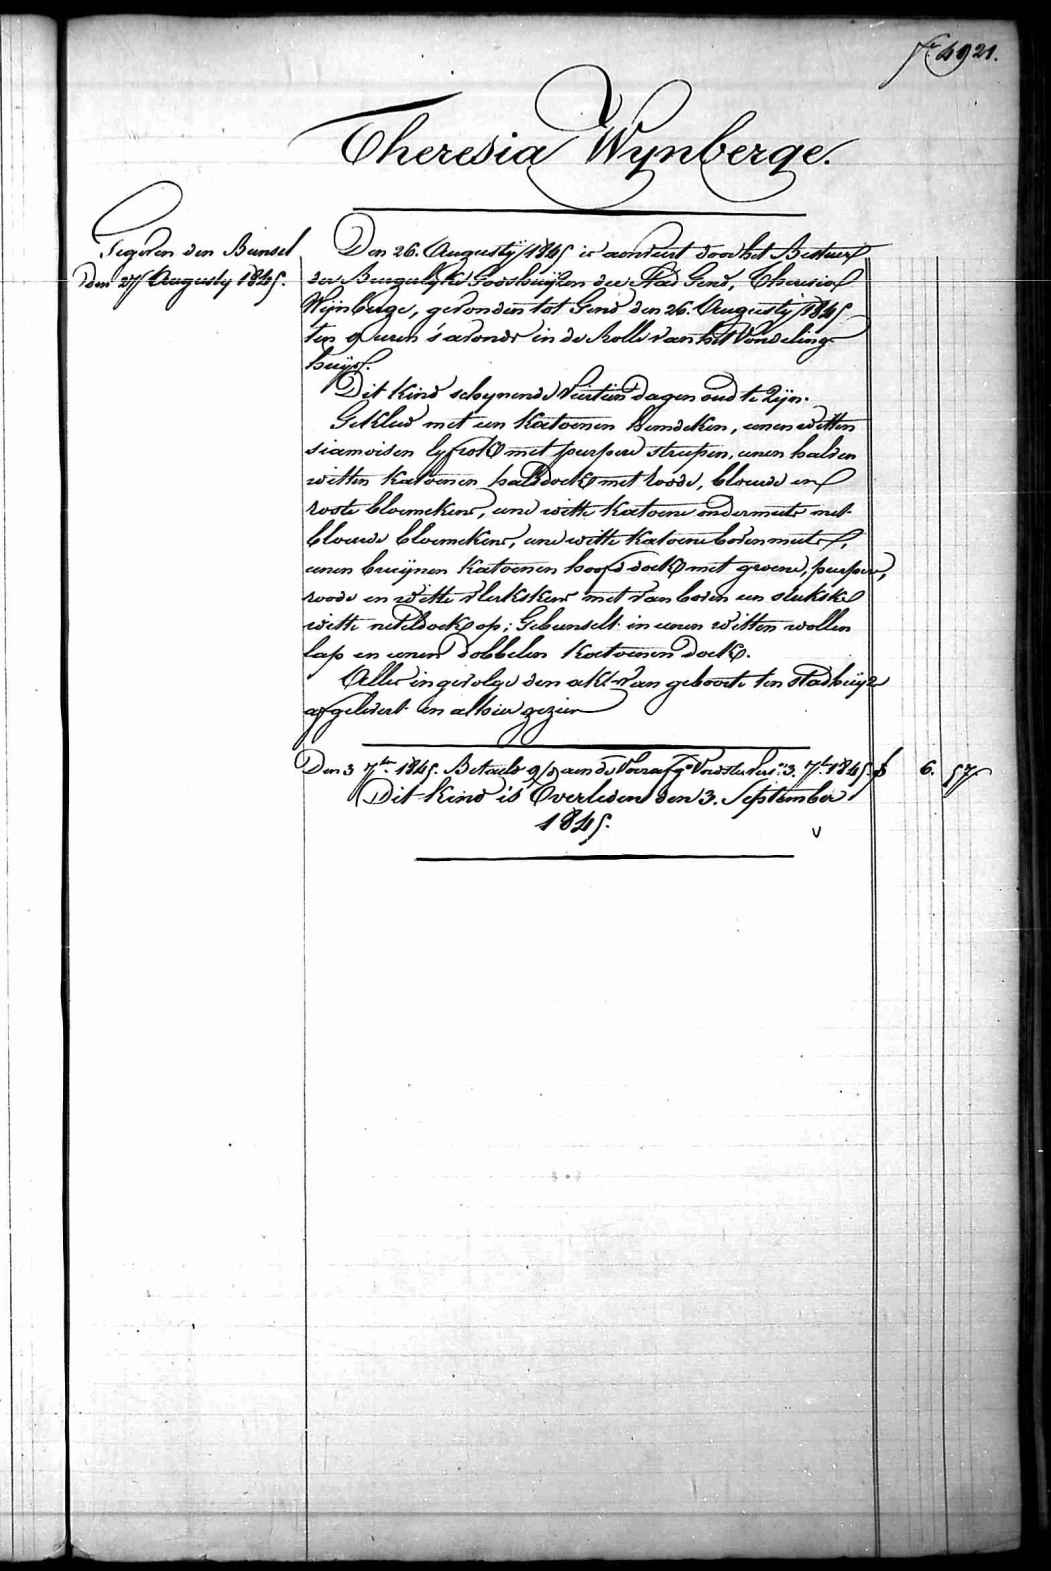 Fo 4921.
Theresia Wynberge.
Gegeven den Bunsel
den 27 Augusty 1845.
Den 26. Augustÿ 1845 is aenveert door het Bestuer
der Burgerlyke Godshuÿzen der Stad Gend, Theresia
Wÿnberge, gevonden tot Gend den 26. Augustÿ 1845
ten 9 uren s'avonds in de Rolle van het Vondeling
huÿs.
Dit Kind schynende veertien dagen oud te Zÿn.
Gekleed met een Katoenen hemdeken, eenen witten
siamoisen lyfrok met purpere streepen, eenen halven
witten Katoenen halsdoek met roode, blouwe en
roste bloemekens, eene witte Katoene ondermuts met
blouwe bloemekens, eene witte Katoene bovenmuts,
eenen bruÿnen Katoenen hoofddoek met groene, purpere,
roode en witte vlekskens met van boven een stukske
witte neteldoek op; Gebunselt in eenen witten wollen
lap en eenen dobbelen Katoenen doek.
Alles in gevolge den akt van geboorte ten Stadhuÿze
afgelevert en alhier gezien
Den 3 7ber 1845. Betaeld aen de 3. 7ber 1845 6. 57
Dit Kind is Overleden den 3. September
1845.
v